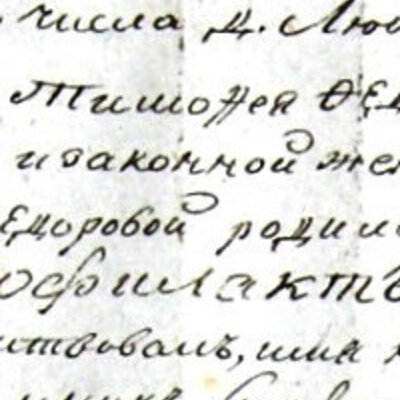 числа Д. Лю
Тимоѳея Ѳед
и законной же
едоровой родил
офилактъ
ствовалъ, има